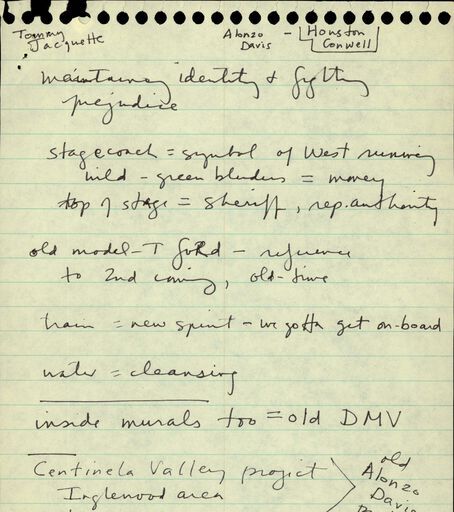 Tommy
Jacquette
Alonzo
Davis
- Houston
Conwell
maintaining identity & fighting
prejudice
stagecoach = symbol of West running
wild - green blinders = money
top of stage = sheriff, rep. authority
old model-T foRd - reference
to 2nd coming, old-time
train = new spirit - we gotta get on-board
water = cleansing
inside murals too = old DMV
Centinela Valley project
Inglewood area
old
Alonzo
Davis